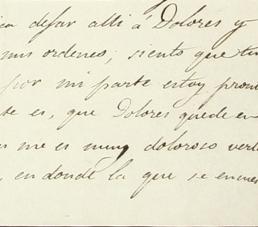 ca dejar alli á Dolores y
mis ordenes; siento que tu
por mi parte estoy pron
te es, que Dolores quede en
me es muy doloroso verl
, en donde la que se encuen